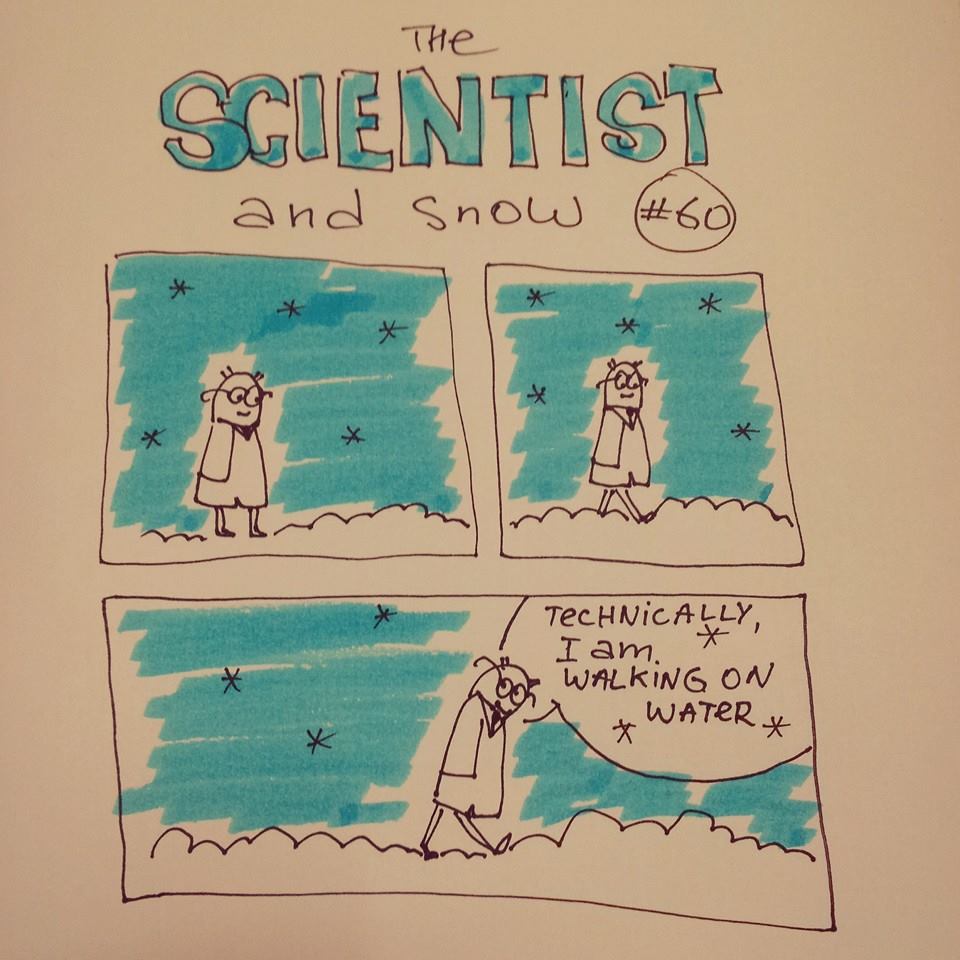 THe
SCIENTIST
and snow #60
TeCHNiCALLY,
I am
WALKiNG ON
WATeR